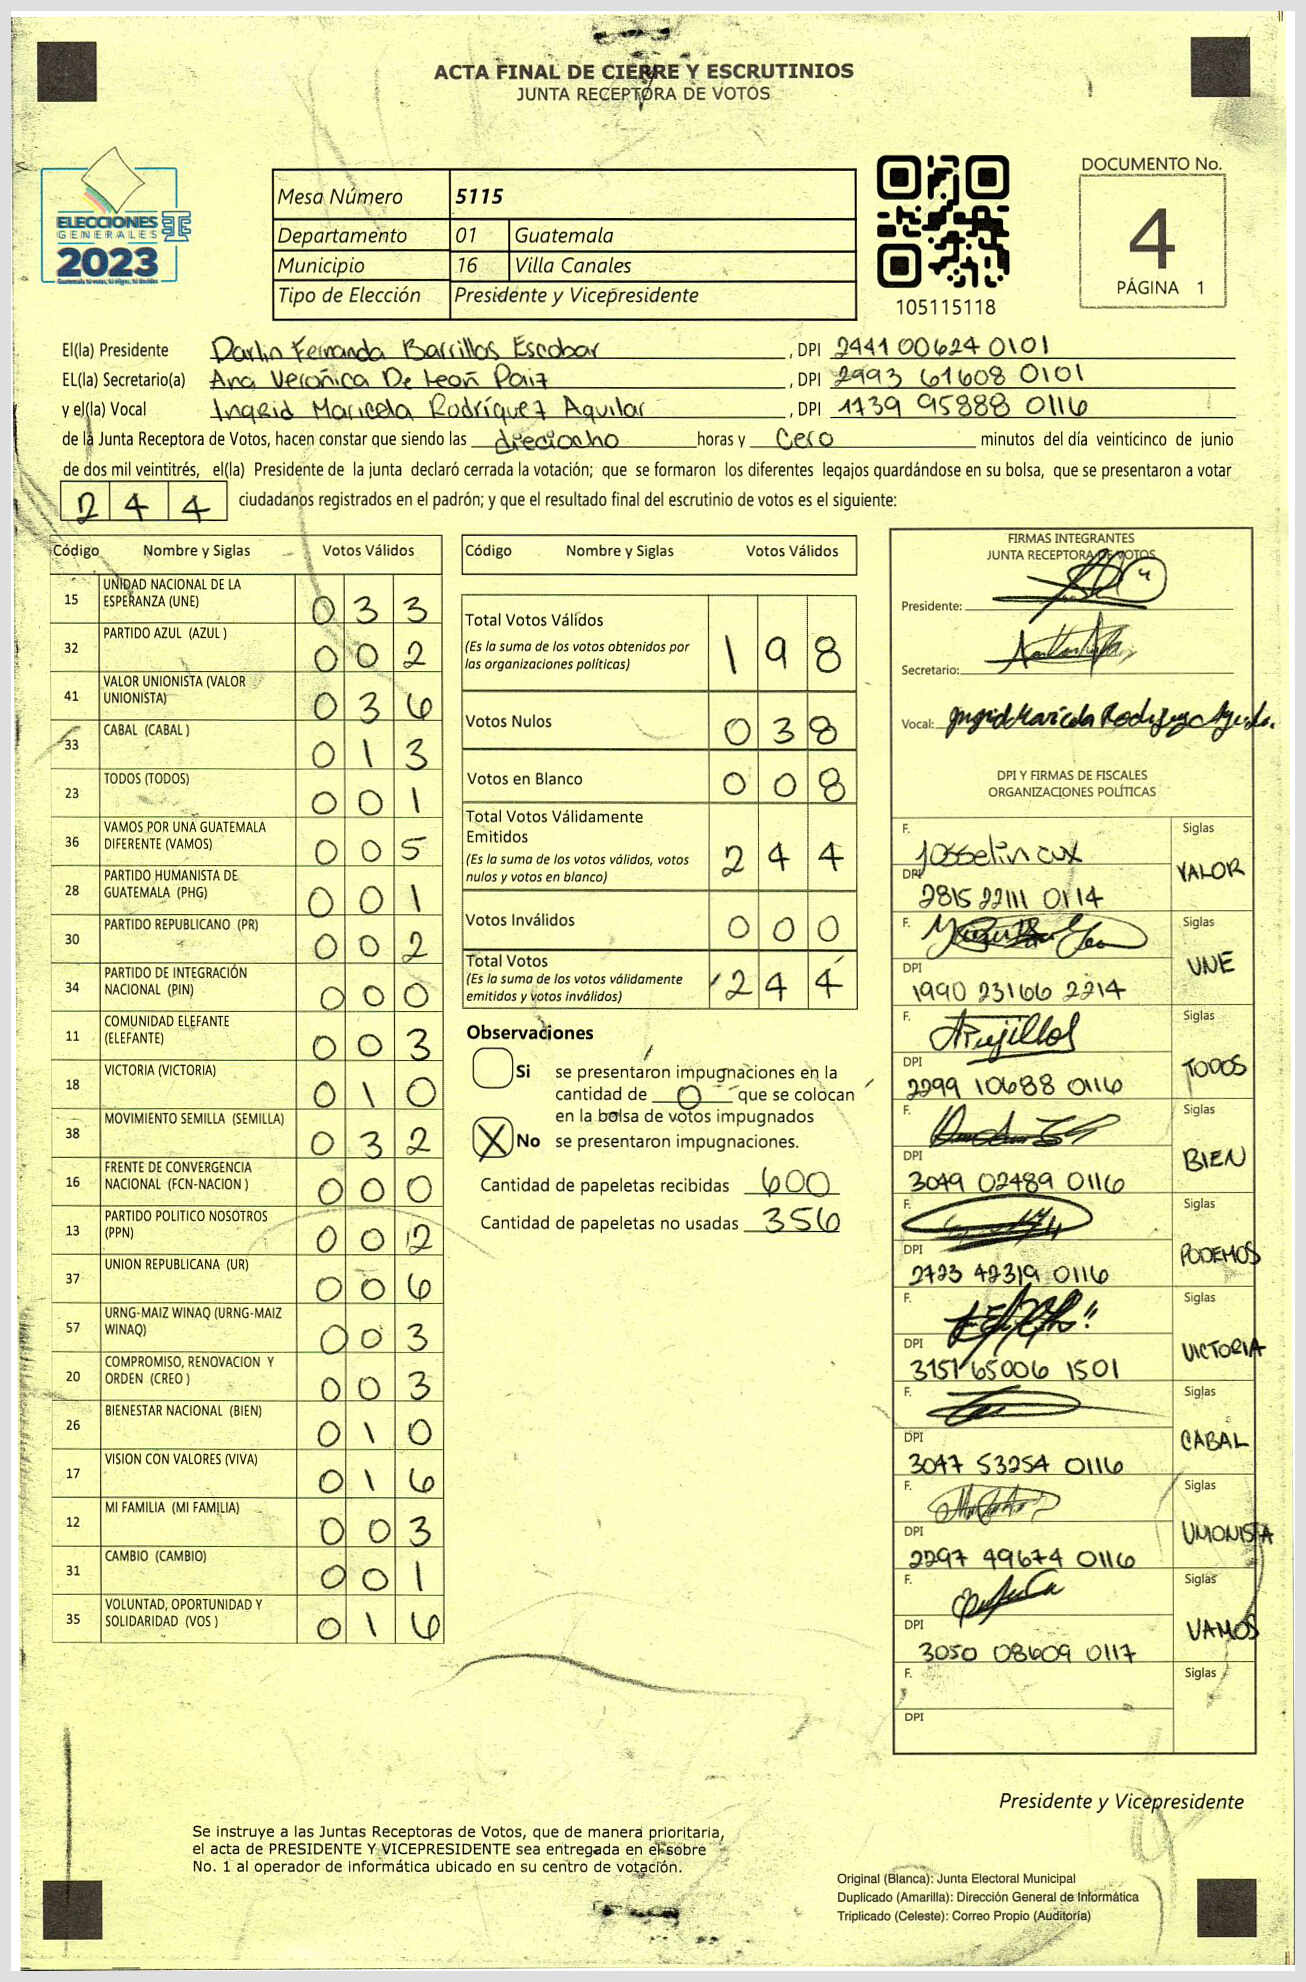 ACTA FINAL DE CIERRE Y ESCRUTINIOS
JUNTA RECEPTORA DE VOTOS
ELECCIONES
GENERALES
2023
Mesa Número 5115
Departamento 01 Guatemala
Municipio 16 Villa Canales
Tipo de Elección Presidente y Vicepresidente
105115118
DOCUMENTO No.
4
PÁGINA 1
El(la) Presidente Darlin Fernanda Barrillas Escobar, DPI 2441 00624 0101
EL(la) Secretario(a) Ana Verónica De León Paiz, DPI 2993 61608 0101
y el(la) Vocal Ingrid Maricela Rodríguez Aguilar, DPI 1739 95888 0116
de la Junta Receptora de Votos, hacen constar que siendo las dieciocho horas y cero minutos del día veinticinco de junio
de dos mil veintitrés, el(la) Presidente de la junta declaró cerrada la votación; que se formaron los diferentes legajos guardándose en su bolsa, que se presentaron a votar
244 ciudadanos registrados en el padrón; y que el resultado final del escrutinio de votos es el siguiente:
Código Nombre y Siglas Votos Válidos
15 UNIDAD NACIONAL DE LA ESPERANZA (UNE) 033
32 PARTIDO AZUL (AZUL ) 002
41 VALOR UNIONISTA (VALOR UNIONISTA) 036
33 CABAL (CABAL ) 013
23 TODOS (TODOS) 001
36 VAMOS POR UNA GUATEMALA DIFERENTE (VAMOS) 005
28 PARTIDO HUMANISTA DE GUATEMALA (PHG) 001
30 PARTIDO REPUBLICANO (PR) 002
34 PARTIDO DE INTEGRACIÓN NACIONAL (PIN) 000
11 COMUNIDAD ELEFANTE (ELEFANTE) 003
18 VICTORIA (VICTORIA) 010
38 MOVIMIENTO SEMILLA (SEMILLA) 032
16 FRENTE DE CONVERGENCIA NACIONAL (FCN-NACION ) 000
13 PARTIDO POLITICO NOSOTROS (PPN) 002
37 UNION REPUBLICANA (UR) 006
57 URNG-MAIZ WINAQ (URNG-MAIZ WINAQ) 003
20 COMPROMISO, RENOVACION Y ORDEN (CREO ) 003
26 BIENESTAR NACIONAL (BIEN) 010
17 VISION CON VALORES (VIVA) 016
12 MI FAMILIA (MI FAMILIA) 003
31 CAMBIO (CAMBIO) 001
35 VOLUNTAD, OPORTUNIDAD Y SOLIDARIDAD (VOS ) 016
Código Nombre y Siglas Votos Válidos
Total Votos Válidos 198
(Es la suma de los votos obtenidos por
las organizaciones políticas)
Votos Nulos 038
Votos en Blanco 008
Total Votos Válidamente
Emitidos 244
(Es la suma de los votos válidos, votos
nulos y votos en blanco)
Votos Inválidos 000
Total Votos 244
(Es la suma de los votos válidamente
emitidos y votos inválidos)
Observaciones
Si se presentaron impugnaciones en la
cantidad de 0 que se colocan
en la bolsa de votos impugnados
X No se presentaron impugnaciones.
Cantidad de papeletas recibidas 600
Cantidad de papeletas no usadas 356
FIRMAS INTEGRANTES
JUNTA RECEPTORA DE VOTOS
Presidente:
Secretario:
Vocal: Ingrid Maricela Rodríguez Aguilar
DPI Y FIRMAS DE FISCALES
ORGANIZACIONES POLÍTICAS
F. Josselin cux Siglas VALOR
DPI 2815 22111 0114
F. Siglas UNE
DPI 1990 23166 2214
F. Trujillos Siglas TODOS
DPI 2299 10688 0116
F. Siglas BIEN
DPI 3049 02489 0116
F. Siglas PODEMOS
DPI 2723 42319 0116
F. Siglas VICTORIA
DPI 3151 65006 1501
F. Siglas CABAL
DPI 3047 53254 0116
F. Siglas UNIONISTA
DPI 2297 49674 0116
F. Siglas VAMOS
DPI 3050 08609 0117
F. Siglas
DPI
Presidente y Vicepresidente
Se instruye a las Juntas Receptoras de Votos, que de manera prioritaria,
el acta de PRESIDENTE Y VICEPRESIDENTE sea entregada en el sobre
No. 1 al operador de informática ubicado en su centro de votación.
Original (Blanca): Junta Electoral Municipal
Duplicado (Amarilla): Dirección General de Informática
Triplicado (Celeste): Correo Propio (Auditoría)